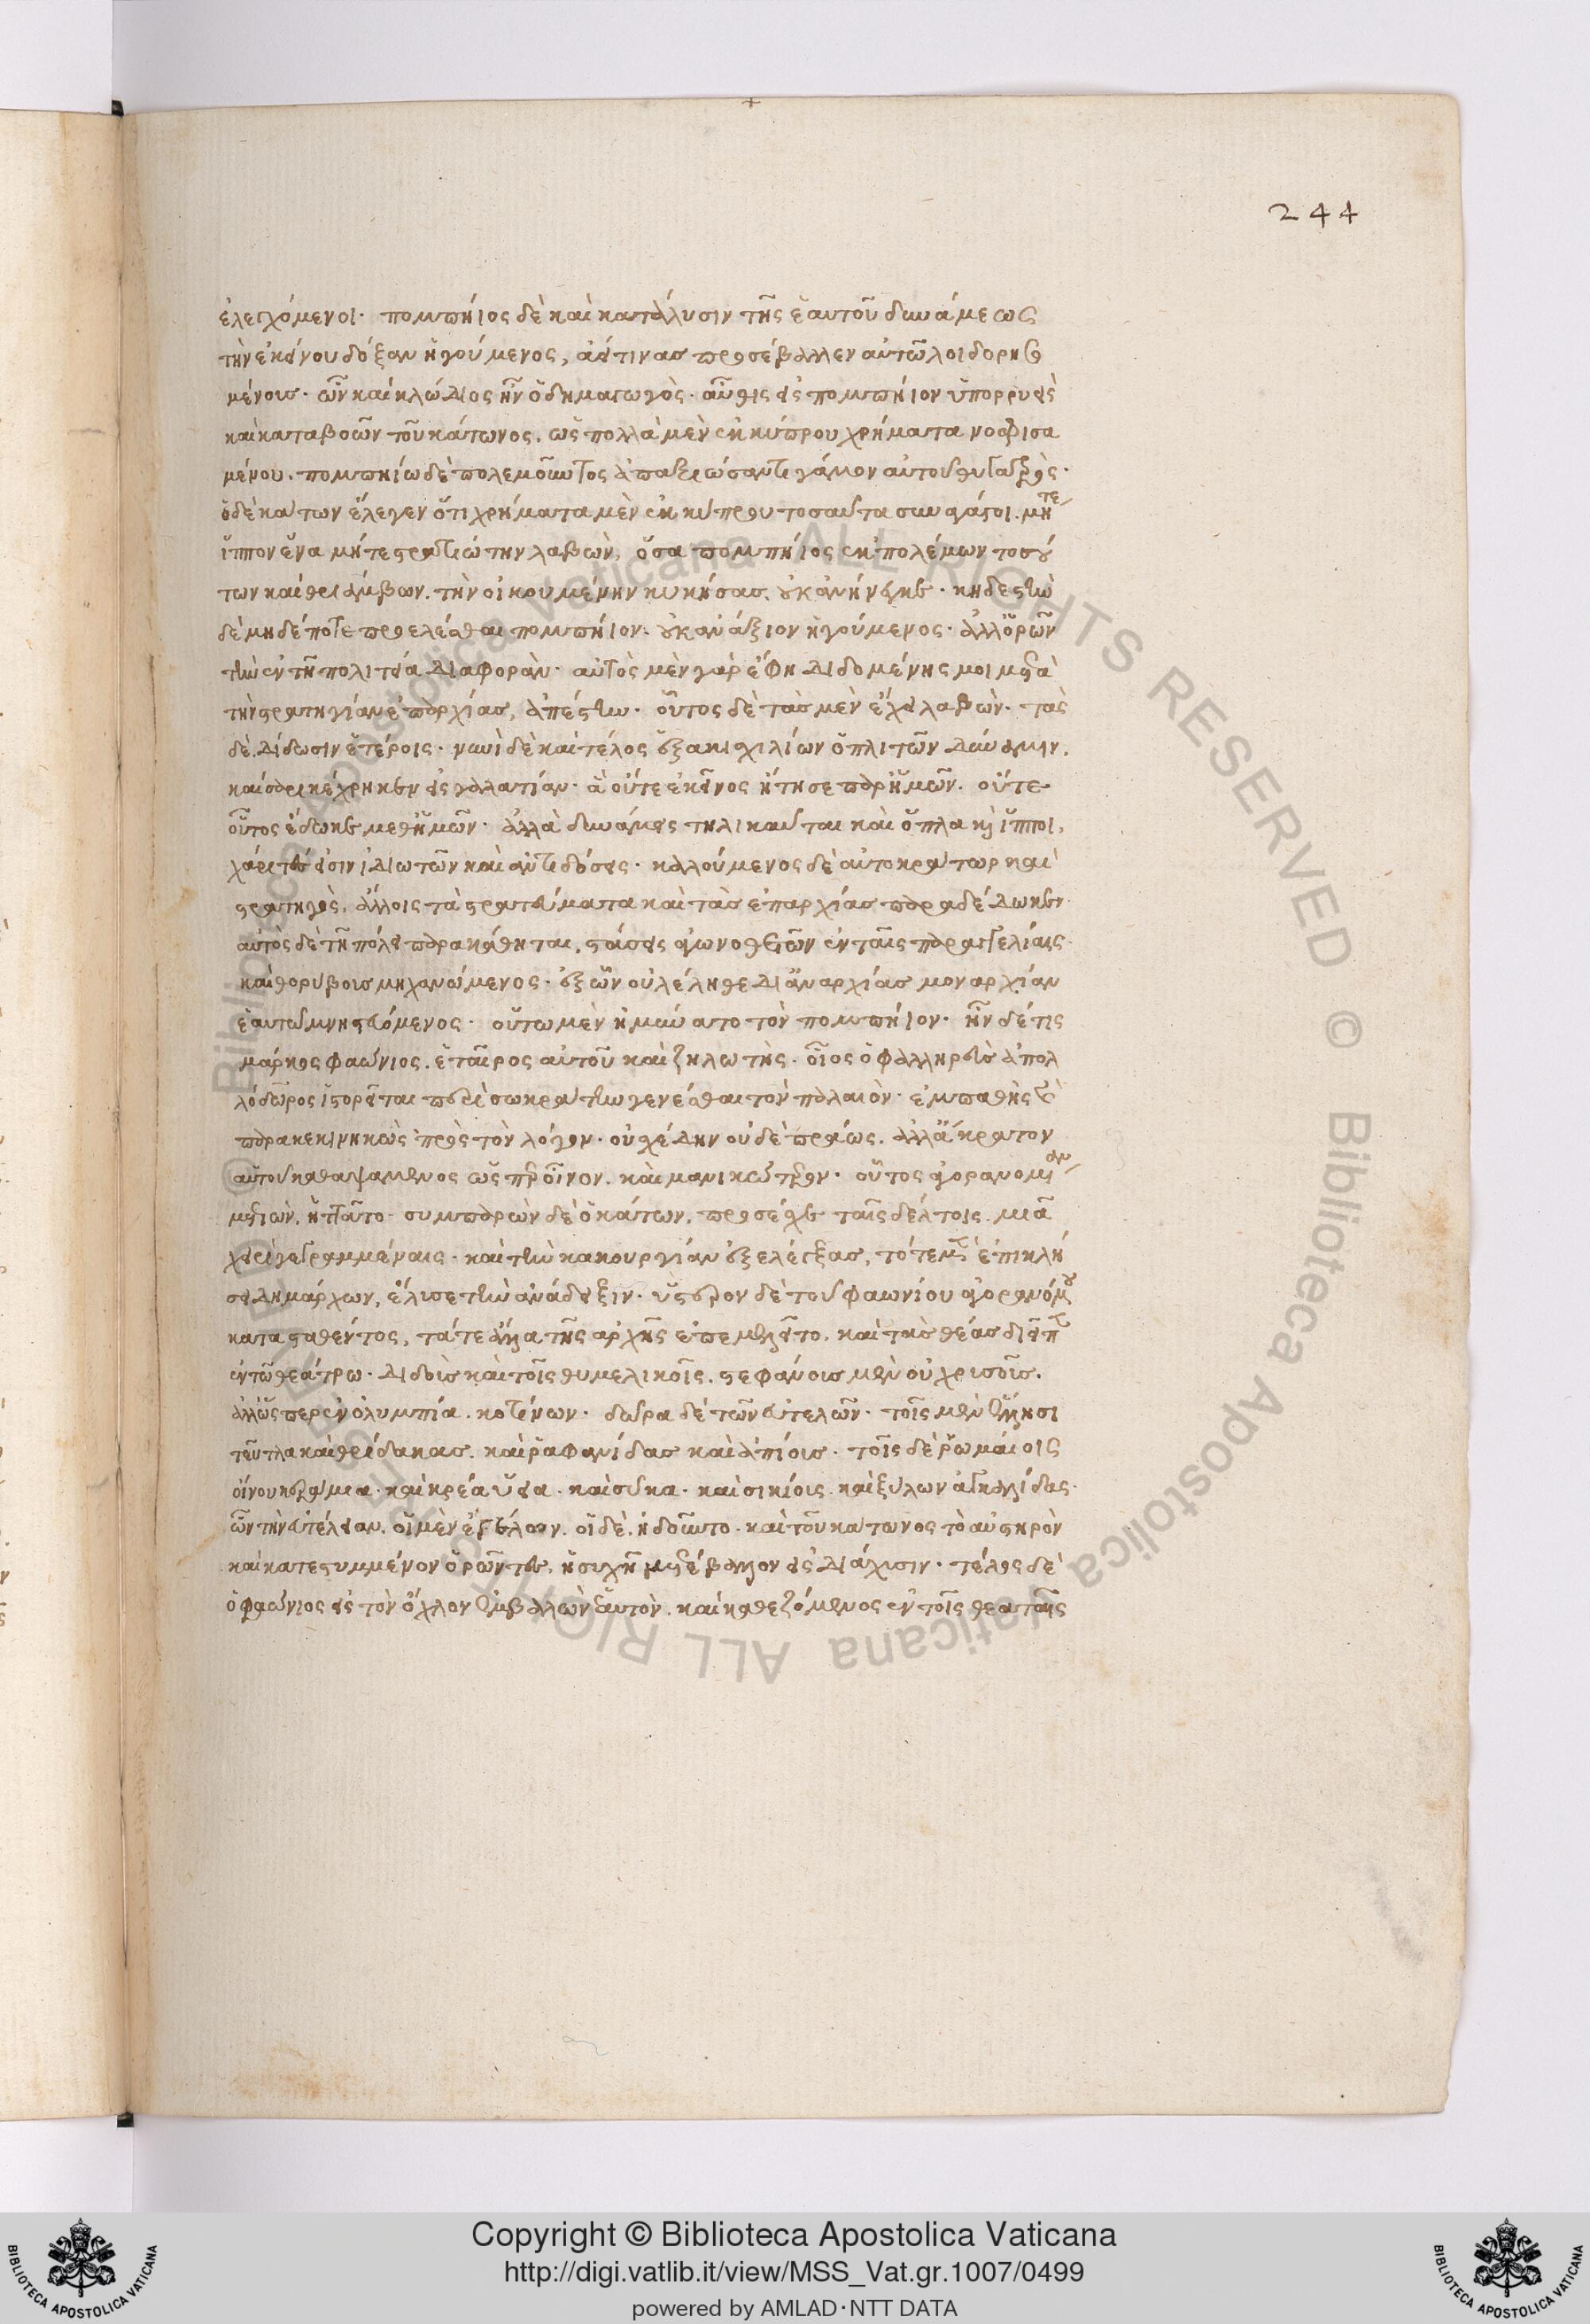 244
ἐλεγχόμενοι· πομπήιος δὲ καὶ κατάλυσιν τῆς ἑαυτοῦ δυνάμεως
τὴν ἐκείνου δόξαν ἡγούμενος, ἀεί τινας προσέβαλλεν αὐτῷ λοιδορησο
μένους· ὧν καὶ κλώδιος ἦν ὁ δημαγωγὸς· αὖθις εἰς πομπήιον ὑπορρυεὶς
καὶ καταβοῶν τοῦ κάτωνος, ὡς πολλὰ μὲν ἐκ κύπρου χρήματα νοσφισα
μένου. πομπηίω δὲ πολεμοῦντος ἀπαξιώσαντι γάμον αὐτοῦ θυγατρὸς·
ὁ δὲ κάτων ἔλεγεν ὅτι χρήματα μὲν ἐκ κύπρου τοσαῦτα συναγάγοι. μήτε
ἵππον ἕνα μήτε στρατιώτην λαβὼν, ὅσα πομπήιος ἐκ πολέμων τοσού
των καὶ θριάμβων. τὴν οἰκουμένην κυκήσας οὐκ ἀνήνεγκε· κηδεστὴν
δὲ μηδέποτε προελέσθαι πομπήιον. οὐκ ἀνάξιον ἡγούμενος· ἀλλ' ὁρῶν
τὴν ἐν τῇ πολιτεία διαφορὰν· αὐτὸς μὲν γὰρ ἔφη διδομένης μοι μετὰ
τὴν στρατηγίαν ἐπαρχίας, ἀπέστην. οὗτος δὲ τὰς μὲν ἔχει λαβὼν. τὰς
δὲ δίδωσιν ἑτέροις· νυνὶ δὲ καὶ τέλος ἑξακισχιλίων ὁπλιτῶν δύναμιν,
καίσαρι κέχρηκεν εἰς γαλατίαν· ἃ οὔτε ἐκεῖνος ᾔτησε παρ' ἡμῶν. οὔτε
οὗτος ἔδωκε μεθ' ἡμῶν· ἀλλὰ δυνάμεις τηλικαῦται καὶ ὅπλα καὶ ἵπποι,
χάριτές εἰσιν ἰδιωτῶν καὶ ἀντιδόσεις· καλούμενος δὲ αὐτοκράτωρ καὶ
στρατηγὸς, ἄλλοις τὰ στρατεύματα καὶ τὰς ἐπαρχίας παραδέδωκεν
αὐτὸς δὲ τῇ πόλει παρακάθηται, στάσεις ἀγωνοθετῶν ἐν ταῖς παραγγελίαις
καὶ θορύβους μηχανώμενος· ἐξ ὧν οὐ λέληθε δι' ἀναρχίας μοναρχίαν
ἑαυτῶ μνηστευόμενος· οὕτω μὲν ἠμύνατο τὸν πομπήιον· ἦν δέ τις
μάρκος φαώνιος. ἑταῖρος αὐτοῦ καὶ ζηλωτὴς. οἷος ὁ φαληρεὺς ἀπολ
λόδωρος ἱστορεῖται περὶ σωκράτην γενέσθαι τὸν παλαιὸν· ἐμπαθὴς καὶ
παρακεκινηκὼς πρὸς τὸν λόγον· οὐ σχέδην οὐδὲ πράως. ἀλλ' ἄκρατον
αὐτοῦ καθαψάμενος ὥσπερ οἶνον. καὶ μανικώτερον· οὗτος ἀγορανομίαν
μετιὼν, ἡττᾶτο· συμπαρὼν δὲ ὁ κάτων, προσέσχε ταῖς δέλτοις μιᾶ
χειρὶ γεγραμμέναις· καὶ τὴν κακουργίαν ἐξελέγξας, τότε μὲν ἐπικλή
σει δημάρχων, ἔλυσε τὴν ἀνάδειξιν· ὕστερον δὲ τοῦ φαωνίου ἀγορανόμου
κατασταθέντος, τά τε ἄλλα τῆς ἀρχῆς ἐπεμελεῖτο. καὶ τὰς θέας διεῖπεν
ἐν τῶ θεάτρω· διδοὺς καὶ τοῖς θυμελικοῖς. στεφάνους μὲν οὐ χρυσοῦς.
ἀλλ' ὥσπερ ἐν ὀλυμπία. κοτίνων· δῶρα δὲ τῶν εὐτελῶν· τοῖς μὲν ἕλλησι
τεῦτλα καὶ θρίδακας. καὶ ῥαφανίδας καὶ ἀπίους· τοῖς δὲ ῥωμαίοις
οἴνου κεράμια· καὶ κρέα ὕεια· καὶ σῦκα· καὶ σικύους. καὶ ξύλων ἀγκαλίδας·
ὧν τὴν εὐτέλειαν. οἱ μὲν ἐγέλων. οἱ δὲ. ἡδοῦντο· καὶ τοῦ κάτωνος τὸ αὐστηρὸν
καὶ κατεστυμμένον ὁρῶντες, ἡσυχῆ μετέβαλλον εἰς διάχυσιν· τέλος δὲ
ὁ φαώνιος εἰς τὸν ὄχλον ἐμβαλὼν ἑαυτὸν. καὶ καθεζόμενος ἐν τοῖς θεαταῖς
Copyright © Biblioteca Apostolica Vaticana
http://digi.vatlib.it/view/MSS_Vat.gr.1007/0499
powered by AMLAD·NTT DATA